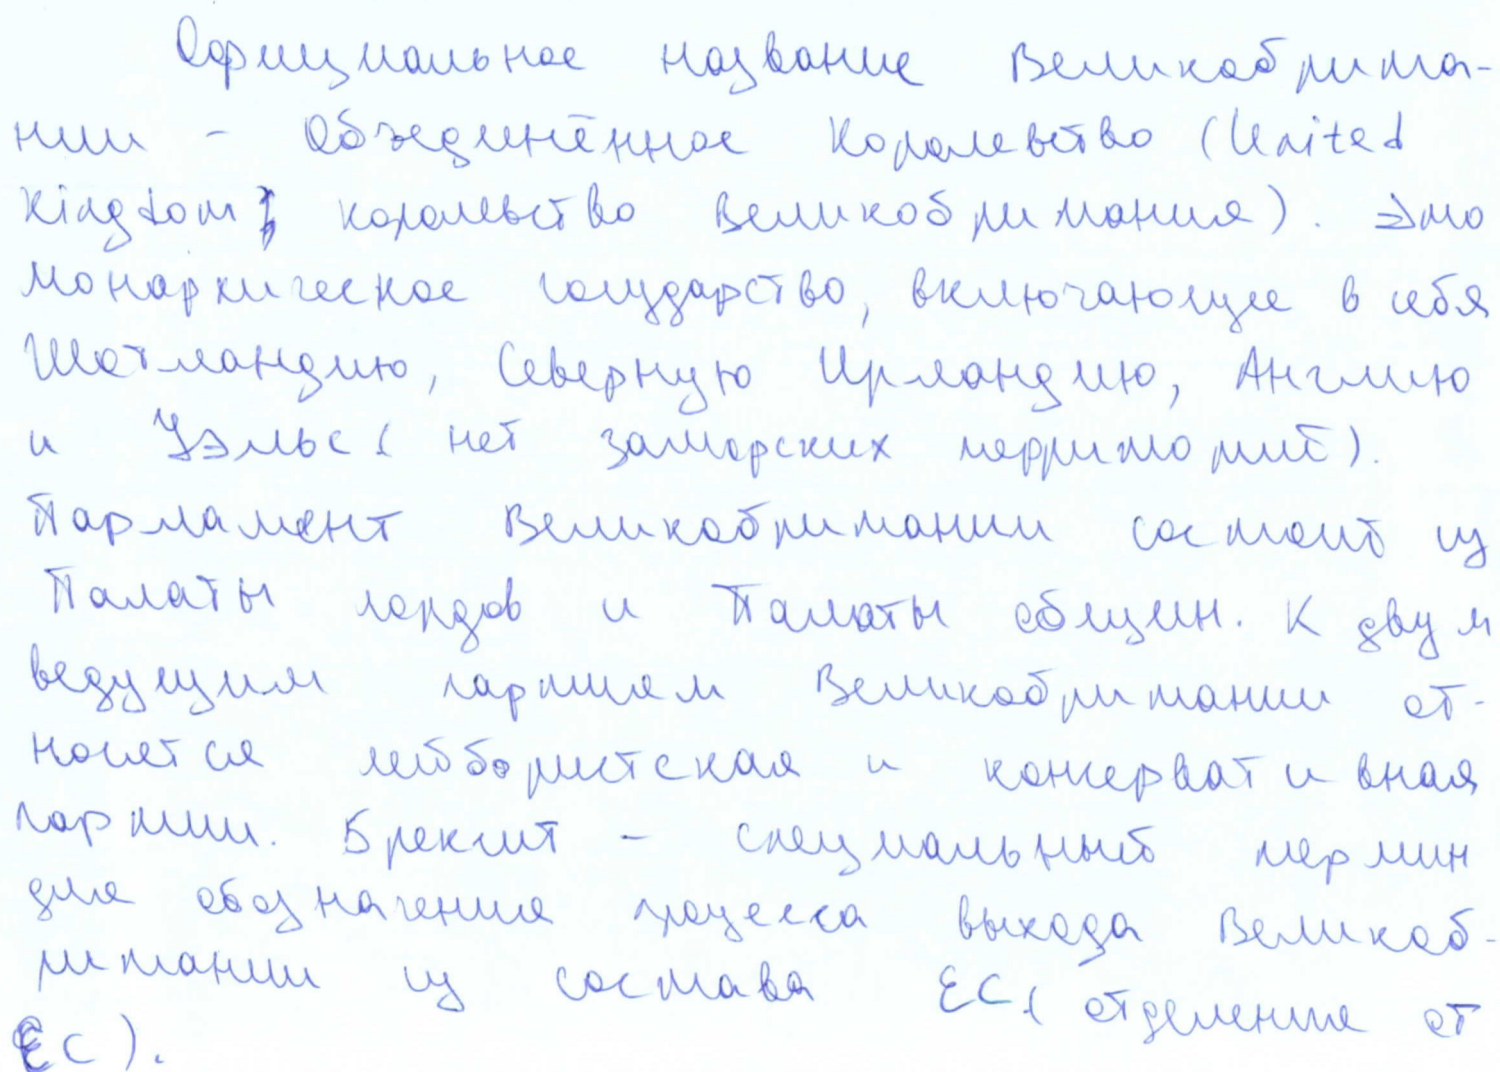 Официальное название Великобрита-
нии - Объединённое Королевство (United
Kingdom, королевство Великобритания). Это
монархическое государство, включающее в себя
Шотландию, Северную Ирландию, Англию
и Уэльс (нет заморских территорий).
Парламент Великобритании состоит из
Палаты лордов и Палаты общин. К двум
ведущим партиям Великобритании от-
носится лейбористская и консервативная
партии. Брексит - специальный термин
для обозначения процесса выхода Великоб-
ритании из состава ЕС (отделение от
ЕС).